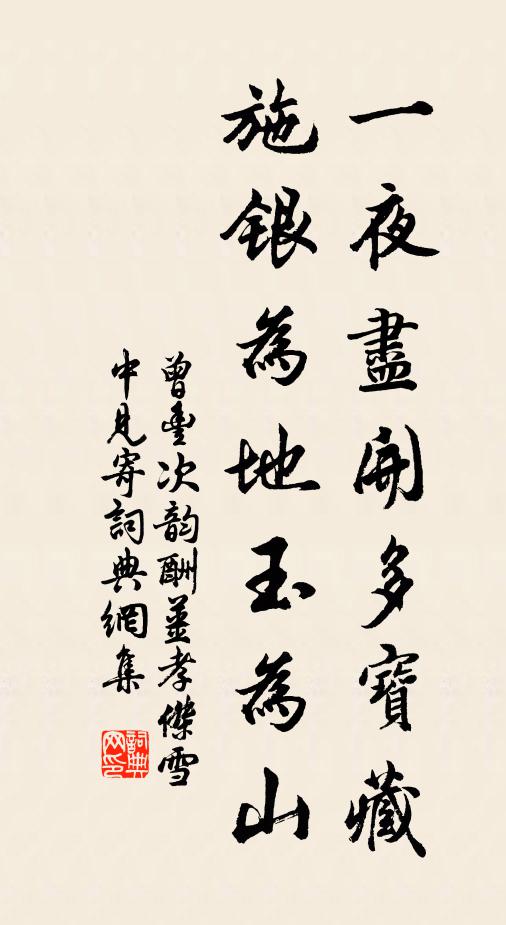 一夜盡開多寶藏
施銀為地玉為山
曾豐次韵酬姜孝傑雪
中見寄詞典網集
詞典
网印